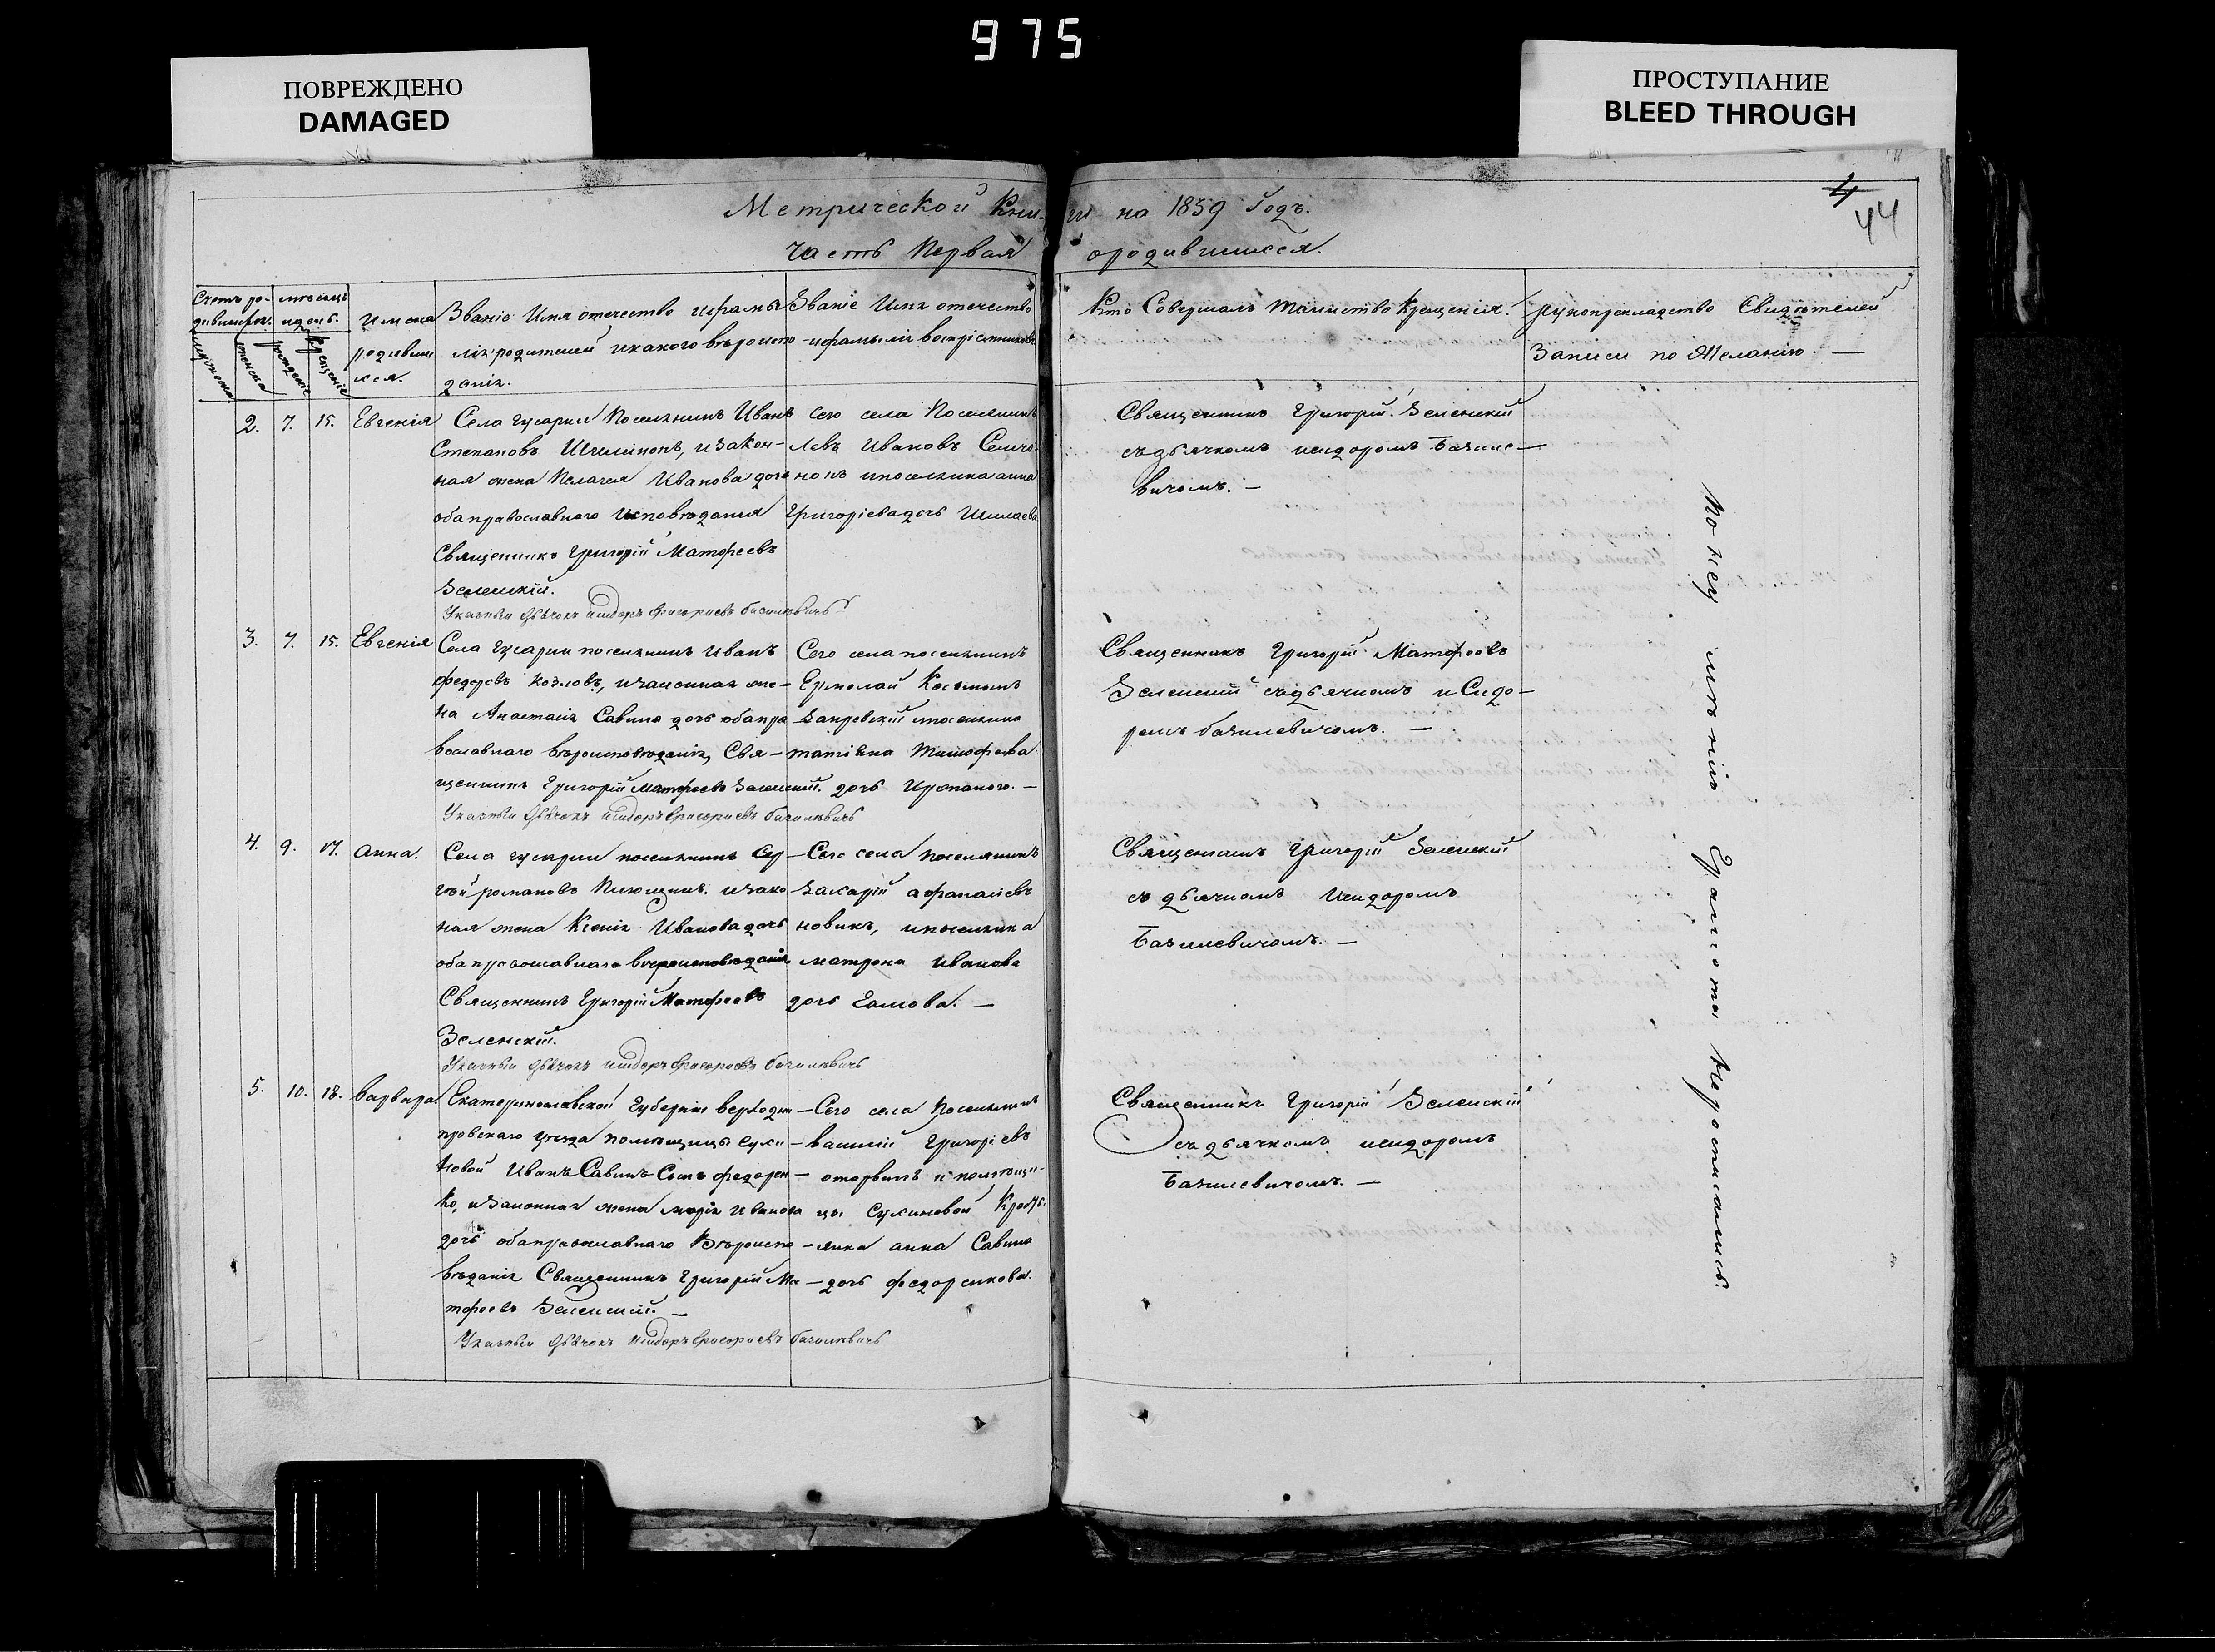 975
ПОВРЕЖДЕНО
DAMAGED
ПРОСТУПАНИЕ
BLEED THROUGH
4
44
Метрической Книги на 1859 Годъ.
Часть Первая ородившихся.
Счетъ ро-
дившихся.
мѣсяцъ
идень.
женска
рожденіе
крещеніе
Имена
родивши
хся.
Званіе Имя отечество ифами
лія родителей икакого вѣроиспо
данія.
Званіе Имя отечество
ифамилія воспріемниковъ
Кто Совершалъ Таинство Крещенія.
рукоприкладство Свидѣтелей
Записи по Желанію. —
2. 7. 15. Евгенія
Села Гусарки Поселянинъ Иванъ
Степановъ изакон-
ная жена Пелагея Иванова дочь
оба православнаго Исповѣданія
Священникъ Григорій Матфеевъ
Зеленскій.
Указный Дьячокъ Исидоръ Григориевъ базилевичъ
Сего села Поселянинъ
Левъ Ивановъ
ипоселянка анна
Григоріева дочь
Священникъ Григорій Зеленскій
съдьячкомъ исидоромъ Базиле—
вичомъ. —
3. 7. 15. Евгенія
Села Гусарки поселянинъ Иванъ
федоровъ Козловъ, изаконная же—
на Анастасія Савина дочь оба пра
вославнаго вѣроисповѣданія, Свя—
щенникъ Григорій Матфеевъ Зеленскій.
Указный Дьячокъ Исидоръ Григориевъ базилевичъ
Сего села поселянинъ
Ермолай
ипоселянка
татіяна Тимофеева
дочь —
Священникъ Григорій Матфеевъ
Зеленскій съдьячкомъ иСидо—
ромъ базилевичомъ. —
4. 9. 17. Анна.
Села гусарки поселянинъ Сер—
гѣй романовъ изако
ная жена Ксенія Иванова дочь
оба православнаго вѣроисповѣданія
Священникъ Григорій Матфеевъ
Зеленскій.
Указный Дьячокъ Исидоръ Григориевъ базилевичъ
Сего села поселянинъ
Захарій афанасіевъ
новикъ, ипоселянка
матрона иванова
дочь —
Священникъ Григорій Зеленскій
съ дьячкомъ Исидоромъ
Базилевичомъ. —
5. 10. 18. Варвара.
Екатеринославской Губерніи верходне—
провскаго уезда помѣщицы Сухи—
новой Иванъ Савинъ Сынъ федорен—
ко, изаконная жена марія иванова
дочь оба православнаго Вѣроиспо—
вѣданія Священникъ Григорій Ма—
тфеевъ Зеленскій. —
Указный Дьячокъ Исидоръ Григориевъ базилевичъ
Сего села Поселянинъ
василій Григоріевъ
и помѣщи-
цы Сухиновой Крест.
янка анна Савина
дочь федоренкова.
Священникъ Григорій Зеленскій
съ дьячкомъ исидоромъ
Базилевичомъ. —
По неу мѣнію Грамоты Неросписались.